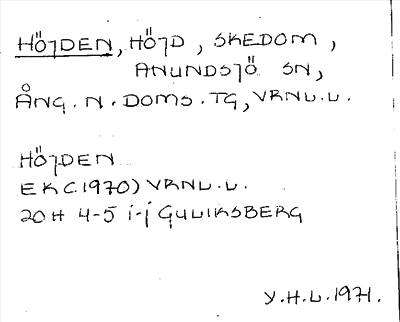 HÖJDEN, HÖJD, SKEDOM,
ANUNDSJÖ SN,
ÅNG. N. DOMS. TG, VRNL.L.
HÖJDEN
EKC1970) VRNL.L.
20H 4-5 i-j GULIKSBERG
Y.H.L.1971.